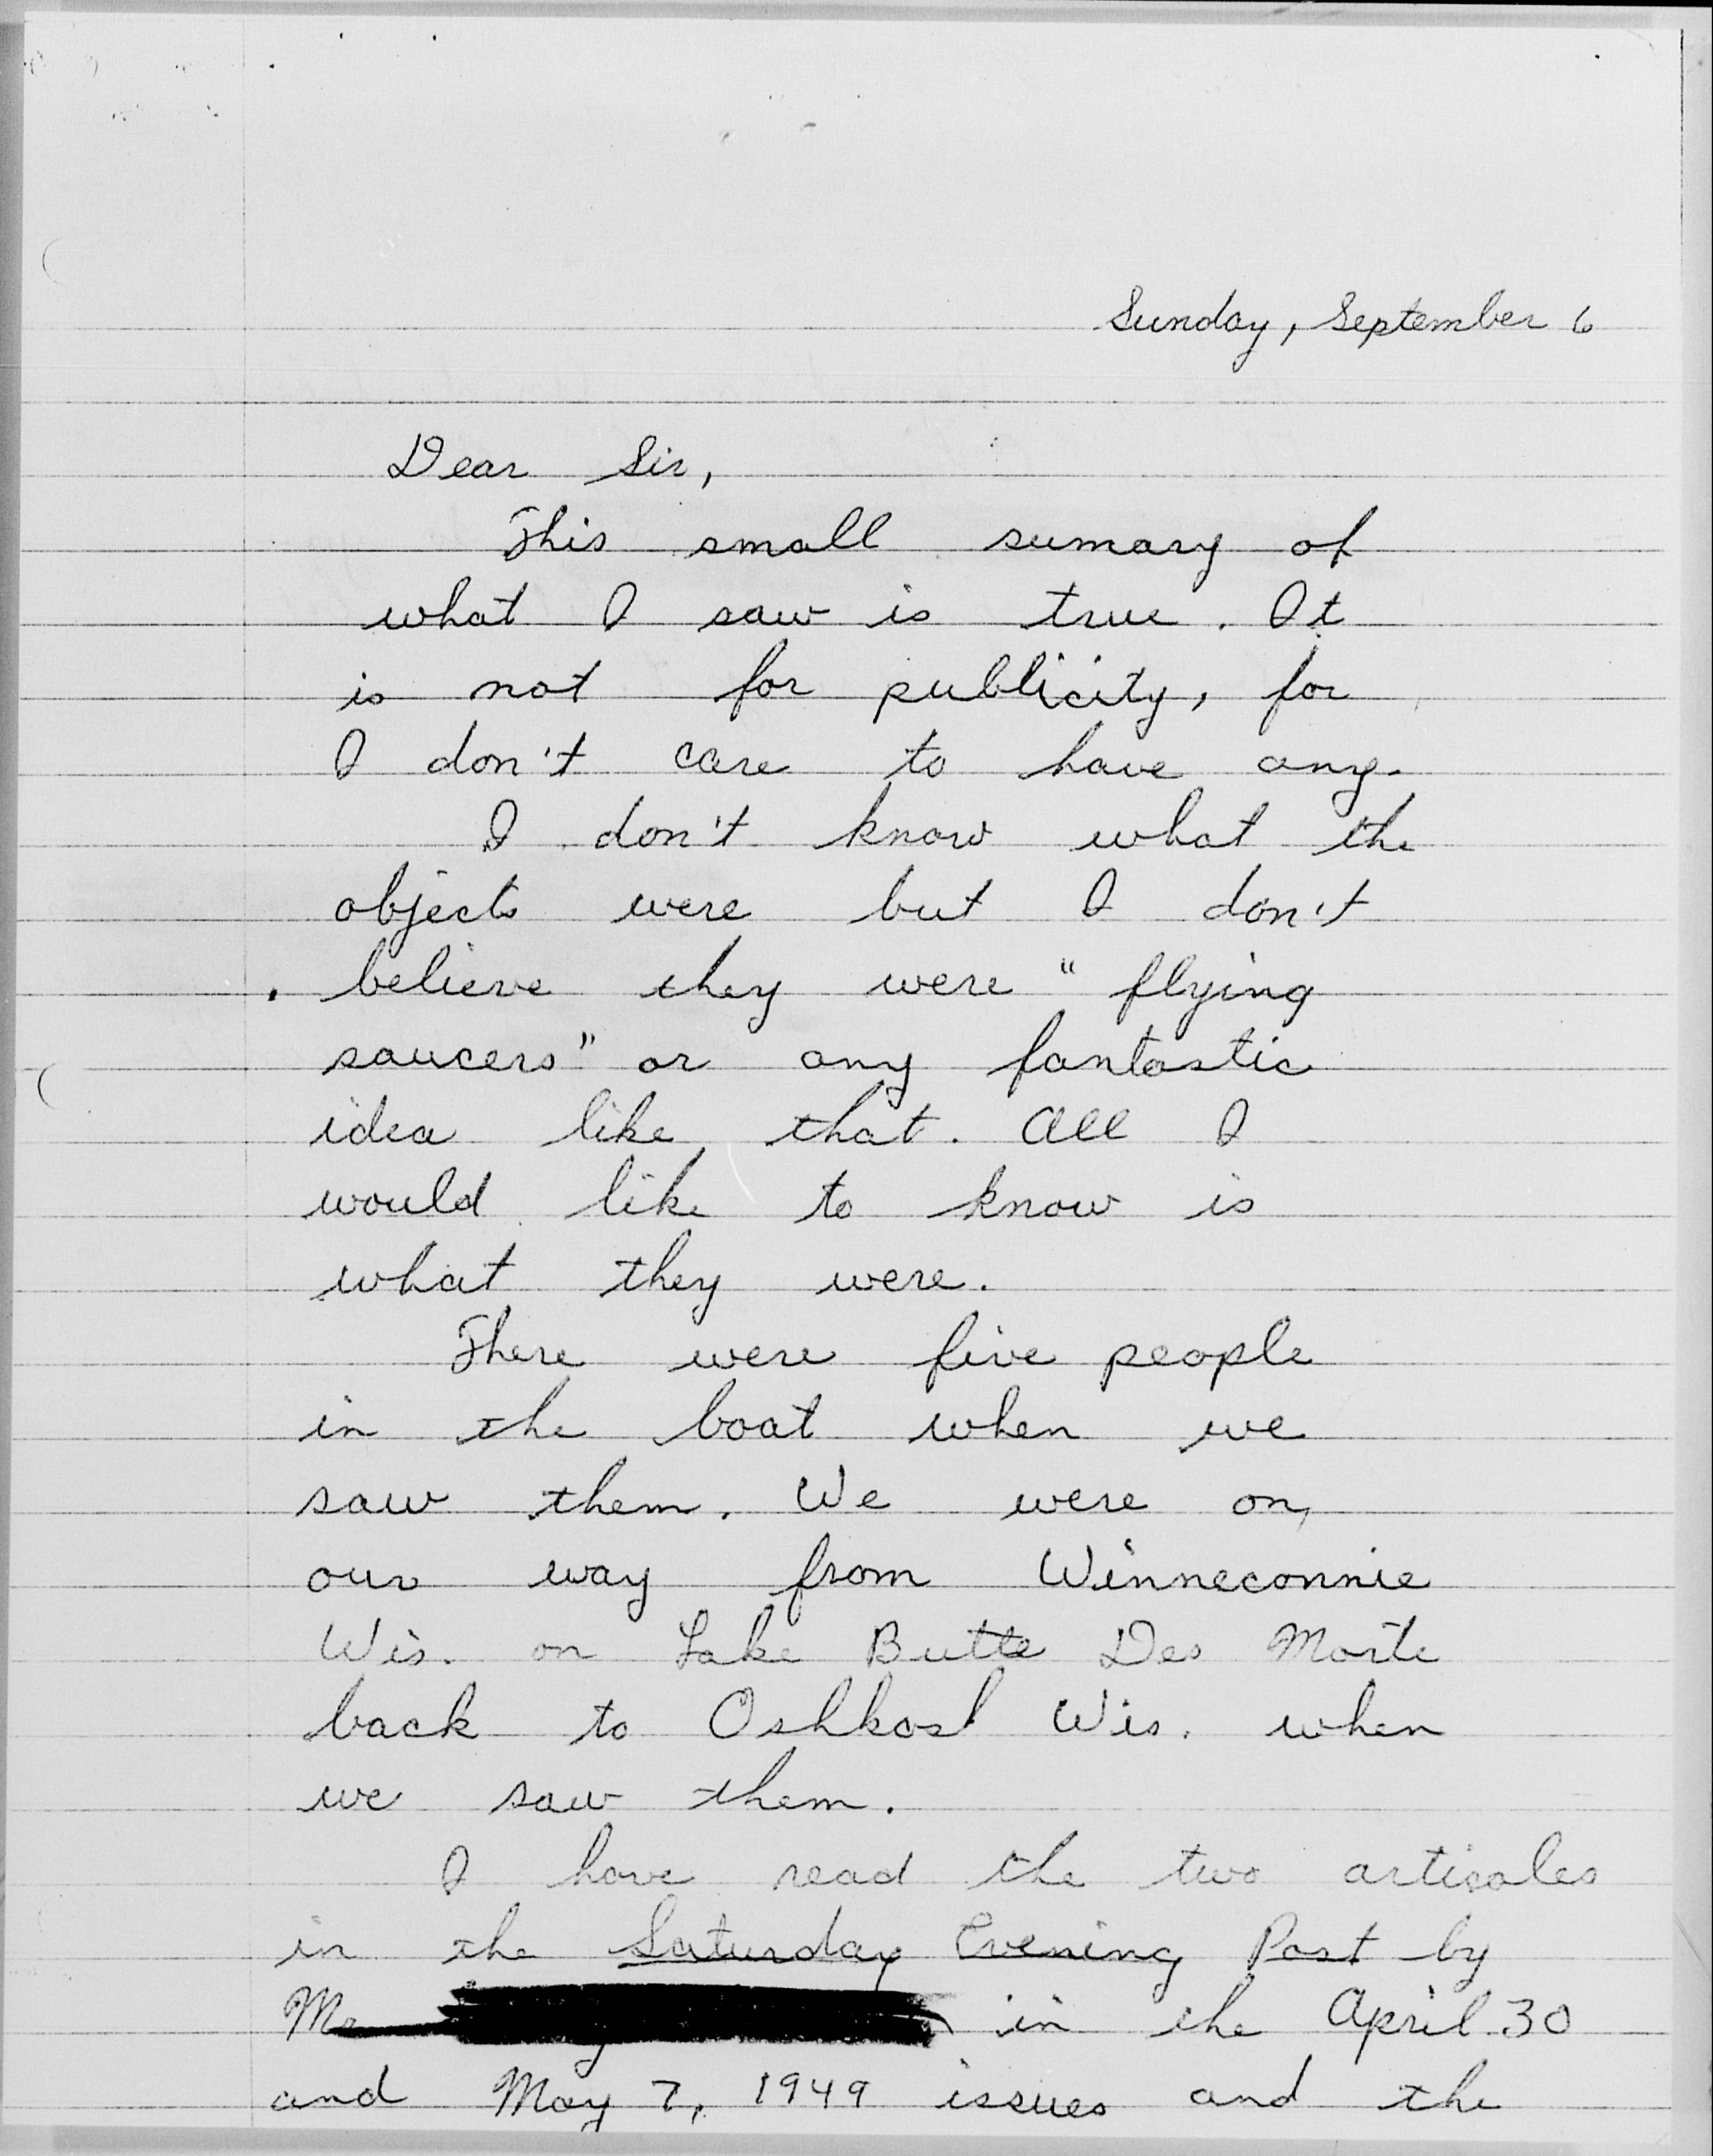 Sunday, September 6
Dear Sir,
This small sumary of
what I saw is true. It
is not for publicity, for
I don't care to have any.
I don't know what the
objects were but I don't
believe they were "flying
saucers" or any fantastic
idea like that. All I
would like to know is
what they were.
There were five people
in the boat when we
saw them. We were on
our way from Winneconnie
Wis. on Lake Butte Des Morte
back to Oshkosh Wis. when
we saw them.
I have read the two articales
in the Saturday Evening Post by
Mr in the April 30
and May 7, 1949 issues and the